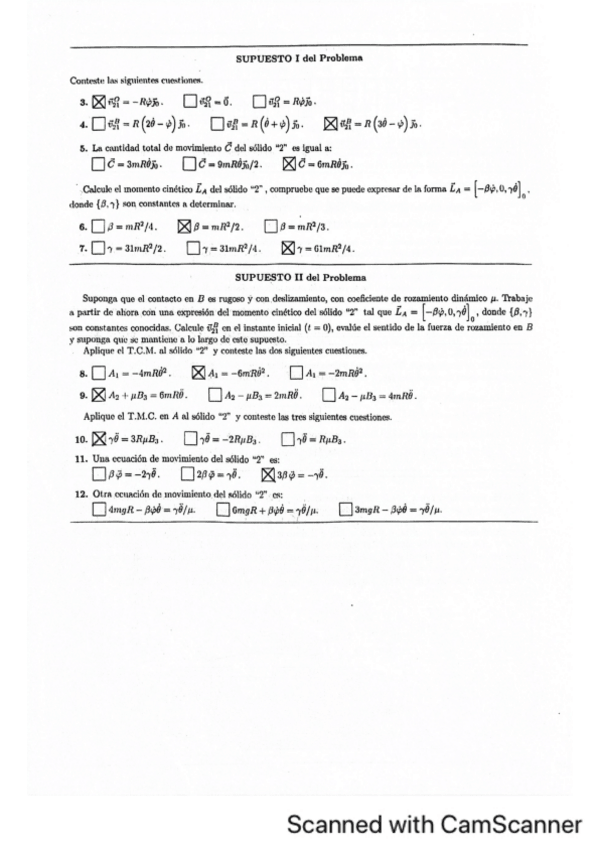 SUPUESTO I del Problema
Conteste las siguientes cuestiones.
3. ☒ v⃗²¹ᴼ = −Rψ̇j⃗₀. ☐ v⃗²¹ᴼ = 0⃗. ☐ v⃗²¹ᴼ = Rψ̇j⃗₀.
4. ☐ v⃗²¹ᴮ = R(2θ̇ − ψ̇) j⃗₀. ☐ v⃗²¹ᴮ = R(θ̇ + ψ̇) j⃗₀. ☒ v⃗²¹ᴮ = R(3θ̇ − ψ̇) j⃗₀.
5. La cantidad total de movimiento C⃗ del sólido "2" es igual a:
☐ C⃗ = 3mRθ̇j⃗₀. ☐ C⃗ = 9mRθ̇j⃗₀/2. ☒ C⃗ = 6mRθ̇j⃗₀.
Calcule el momento cinético L⃗_A del sólido "2", compruebe que se puede expresar de la forma L⃗_A = [−βψ̇, 0, γθ̇]₀,
donde {β, γ} son constantes a determinar.
6. ☐ β = mR²/4. ☒ β = mR²/2. ☐ β = mR²/3.
7. ☐ γ = 31mR²/2. ☐ γ = 31mR²/4. ☒ γ = 61mR²/4.
SUPUESTO II del Problema
Suponga que el contacto en B es rugoso y con deslizamiento, con coeficiente de rozamiento dinámico μ. Trabaje
a partir de ahora con una expresión del momento cinético del sólido "2" tal que L⃗_A = [−βψ̇, 0, γθ̇]₀, donde {β, γ}
son constantes conocidas. Calcule v⃗²¹ᴮ en el instante inicial (t = 0), evalúe el sentido de la fuerza de rozamiento en B
y suponga que se mantiene a lo largo de este supuesto.
Aplique el T.C.M. al sólido "2" y conteste las dos siguientes cuestiones.
8. ☐ A₁ = −4mRθ̇². ☒ A₁ = −6mRθ̇². ☐ A₁ = −2mRθ̇².
9. ☒ A₂ + μB₃ = 6mRθ̈. ☐ A₂ − μB₃ = 2mRθ̈. ☐ A₂ − μB₃ = 4mRθ̈.
Aplique el T.M.C. en A al sólido "2" y conteste las tres siguientes cuestiones.
10. ☒ γθ̈ = 3RμB₃. ☐ γθ̈ = −2RμB₃. ☐ γθ̈ = RμB₃.
11. Una ecuación de movimiento del sólido "2" es:
☐ βψ̈ = −2γθ̈. ☐ 2βψ̈ = γθ̈. ☒ 3βψ̈ = −γθ̈.
12. Otra ecuación de movimiento del sólido "2" es:
☐ 4mgR − βψ̇θ̇ = γθ̈/μ. ☐ 6mgR + βψ̇θ̇ = γθ̈/μ. ☐ 3mgR − βψ̇θ̇ = γθ̈/μ.
Scanned with CamScanner